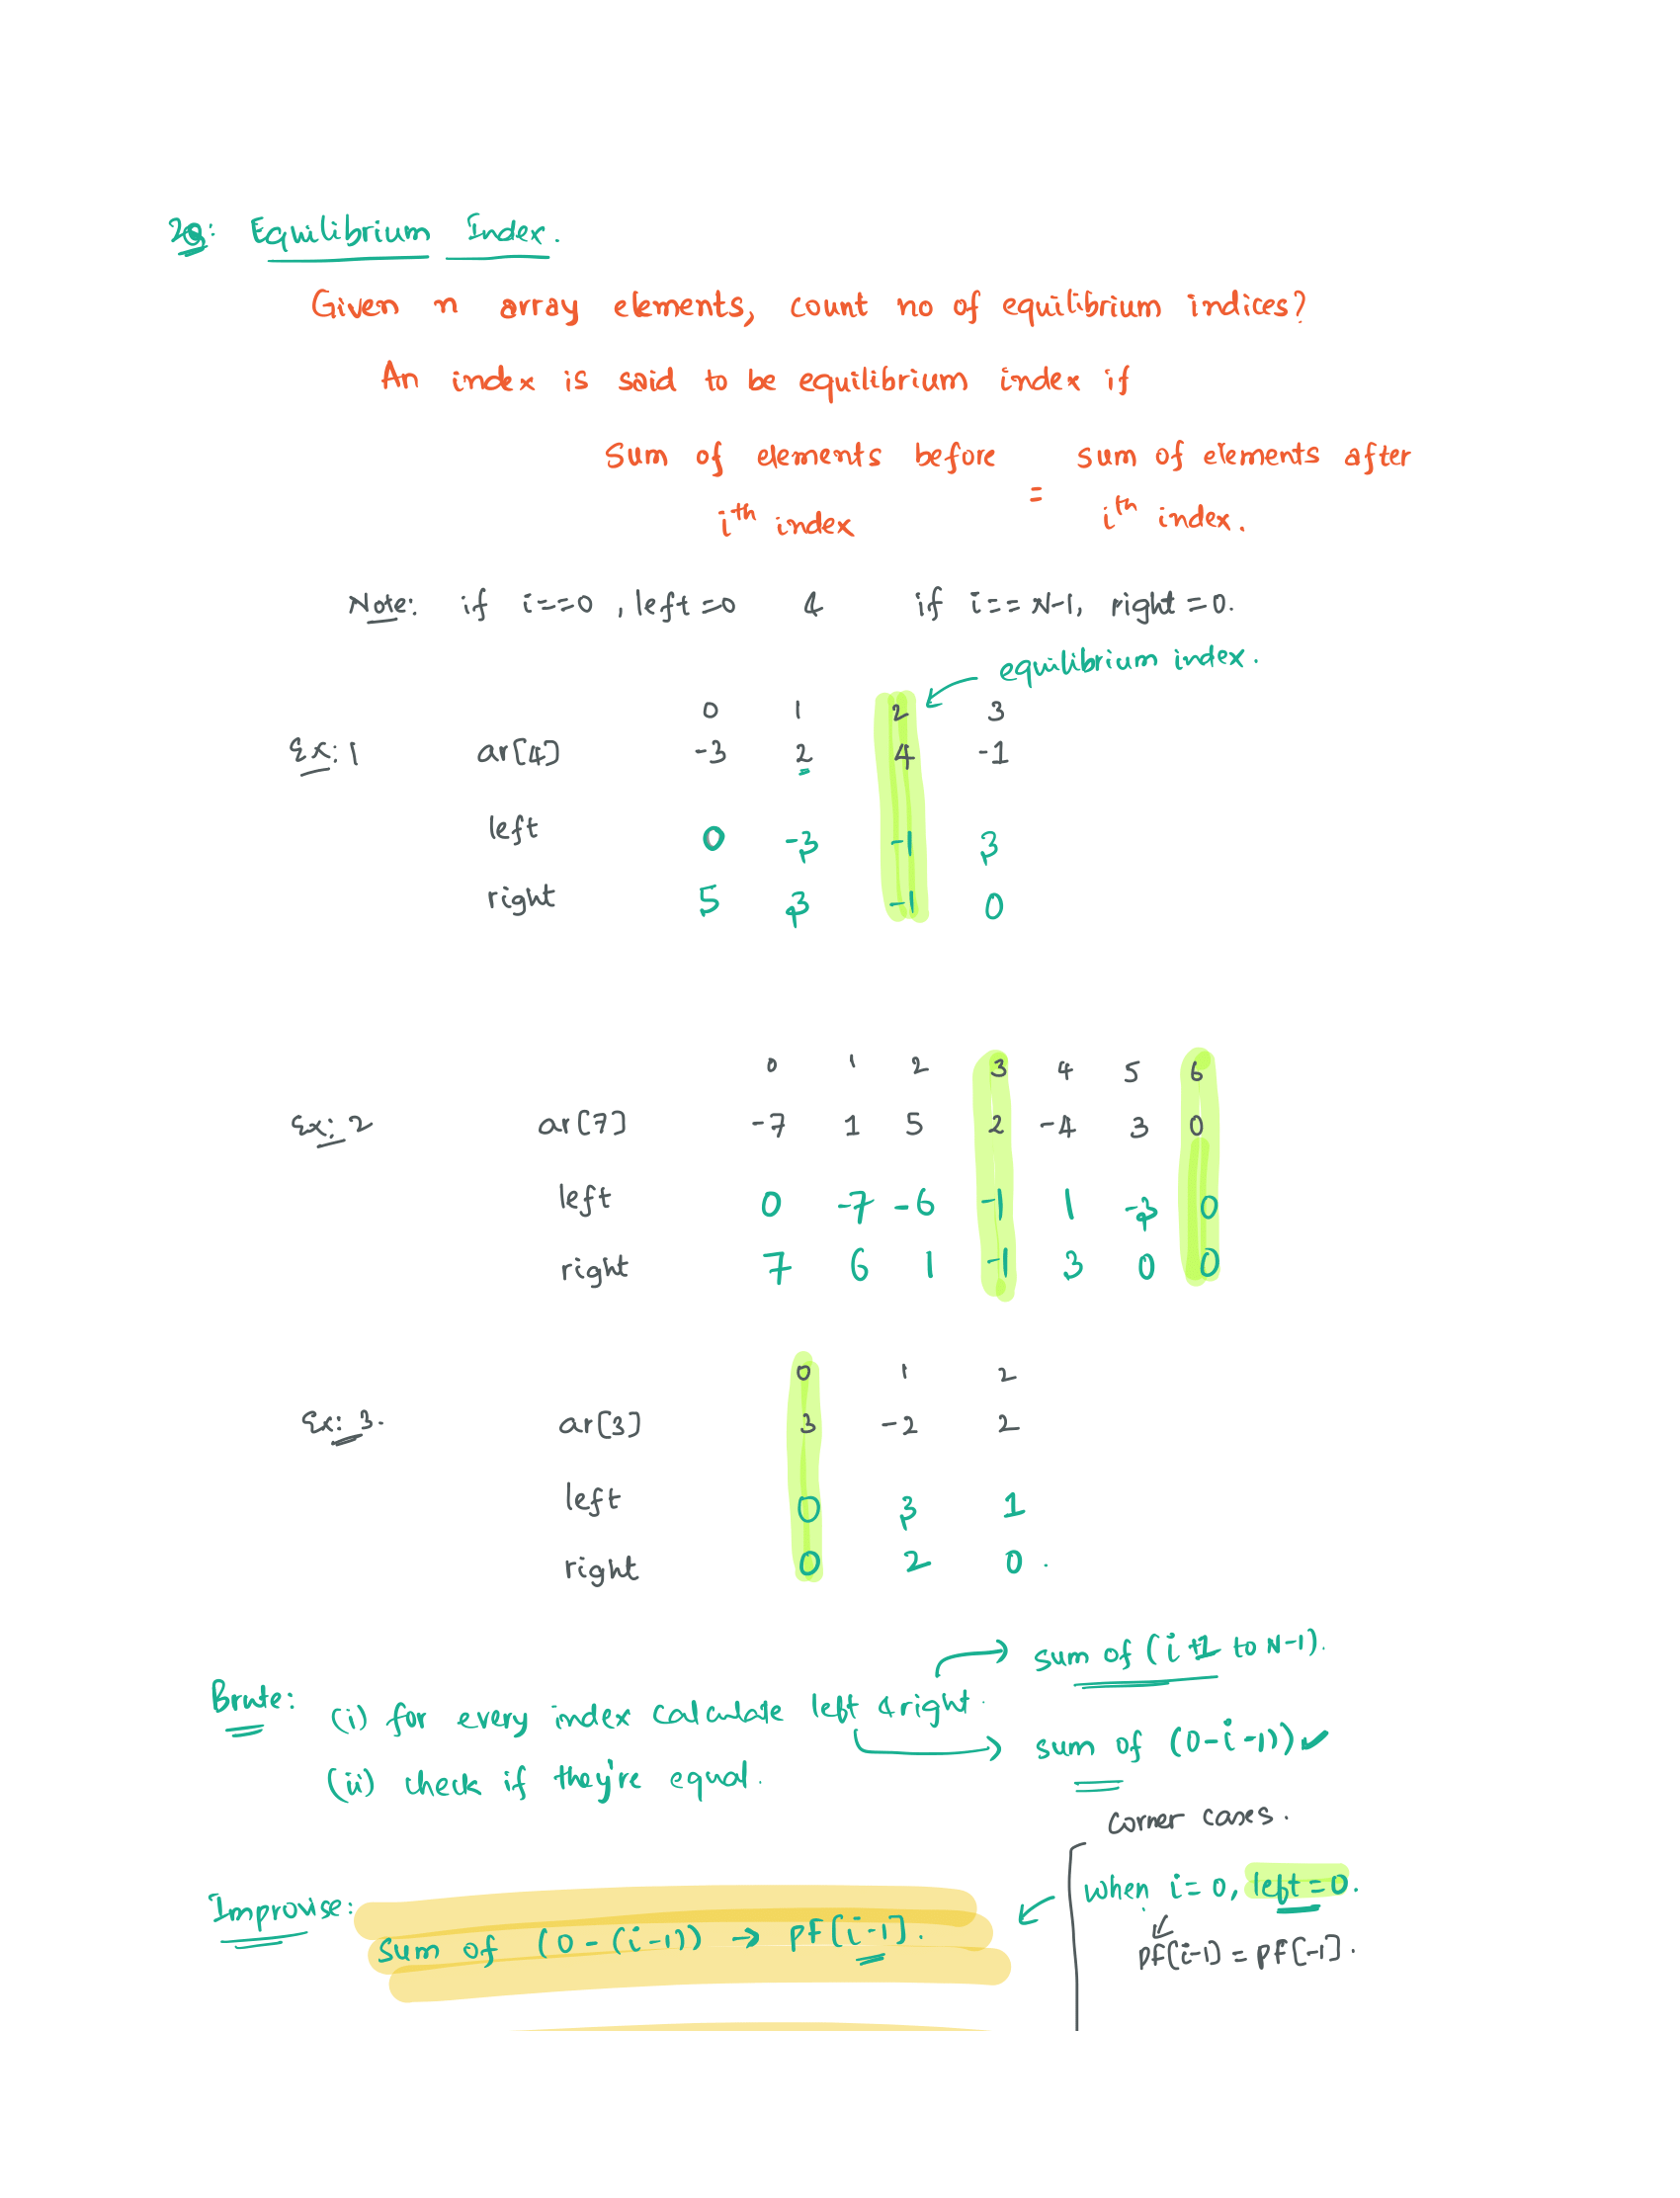 2Q: Equilibrium Index.
Given n array elements, count no of equilibrium indices?
An index is said to be equilibrium index if
Sum of elements before = sum of elements after
ith index ith index.
Note: if i==0, left=0 & if i==N-1, right=0.
equilibrium index.
0 1 2 3
Ex:1 ar[4] -3 2 4 -1
left 0 -3 -1 3
right 5 3 -1 0
0 1 2 3 4 5 6
Ex:2 ar[7] -7 1 5 2 -4 3 0
left 0 -7 -6 -1 1 -3 0
right 7 6 1 -1 3 0 0
0 1 2
Ex:3. ar[3] 3 -2 2
left 0 3 1
right 0 2 0.
sum of (i+1 to N-1).
Brute: (i) for every index calculate left & right.
sum of (0-i-1))
(ii) check if they're equal.
Corner cases.
when i=0, left=0.
Improvise: sum of (0-(i-1)) → pf[i-1].
pf[i-1] = pf[-1].